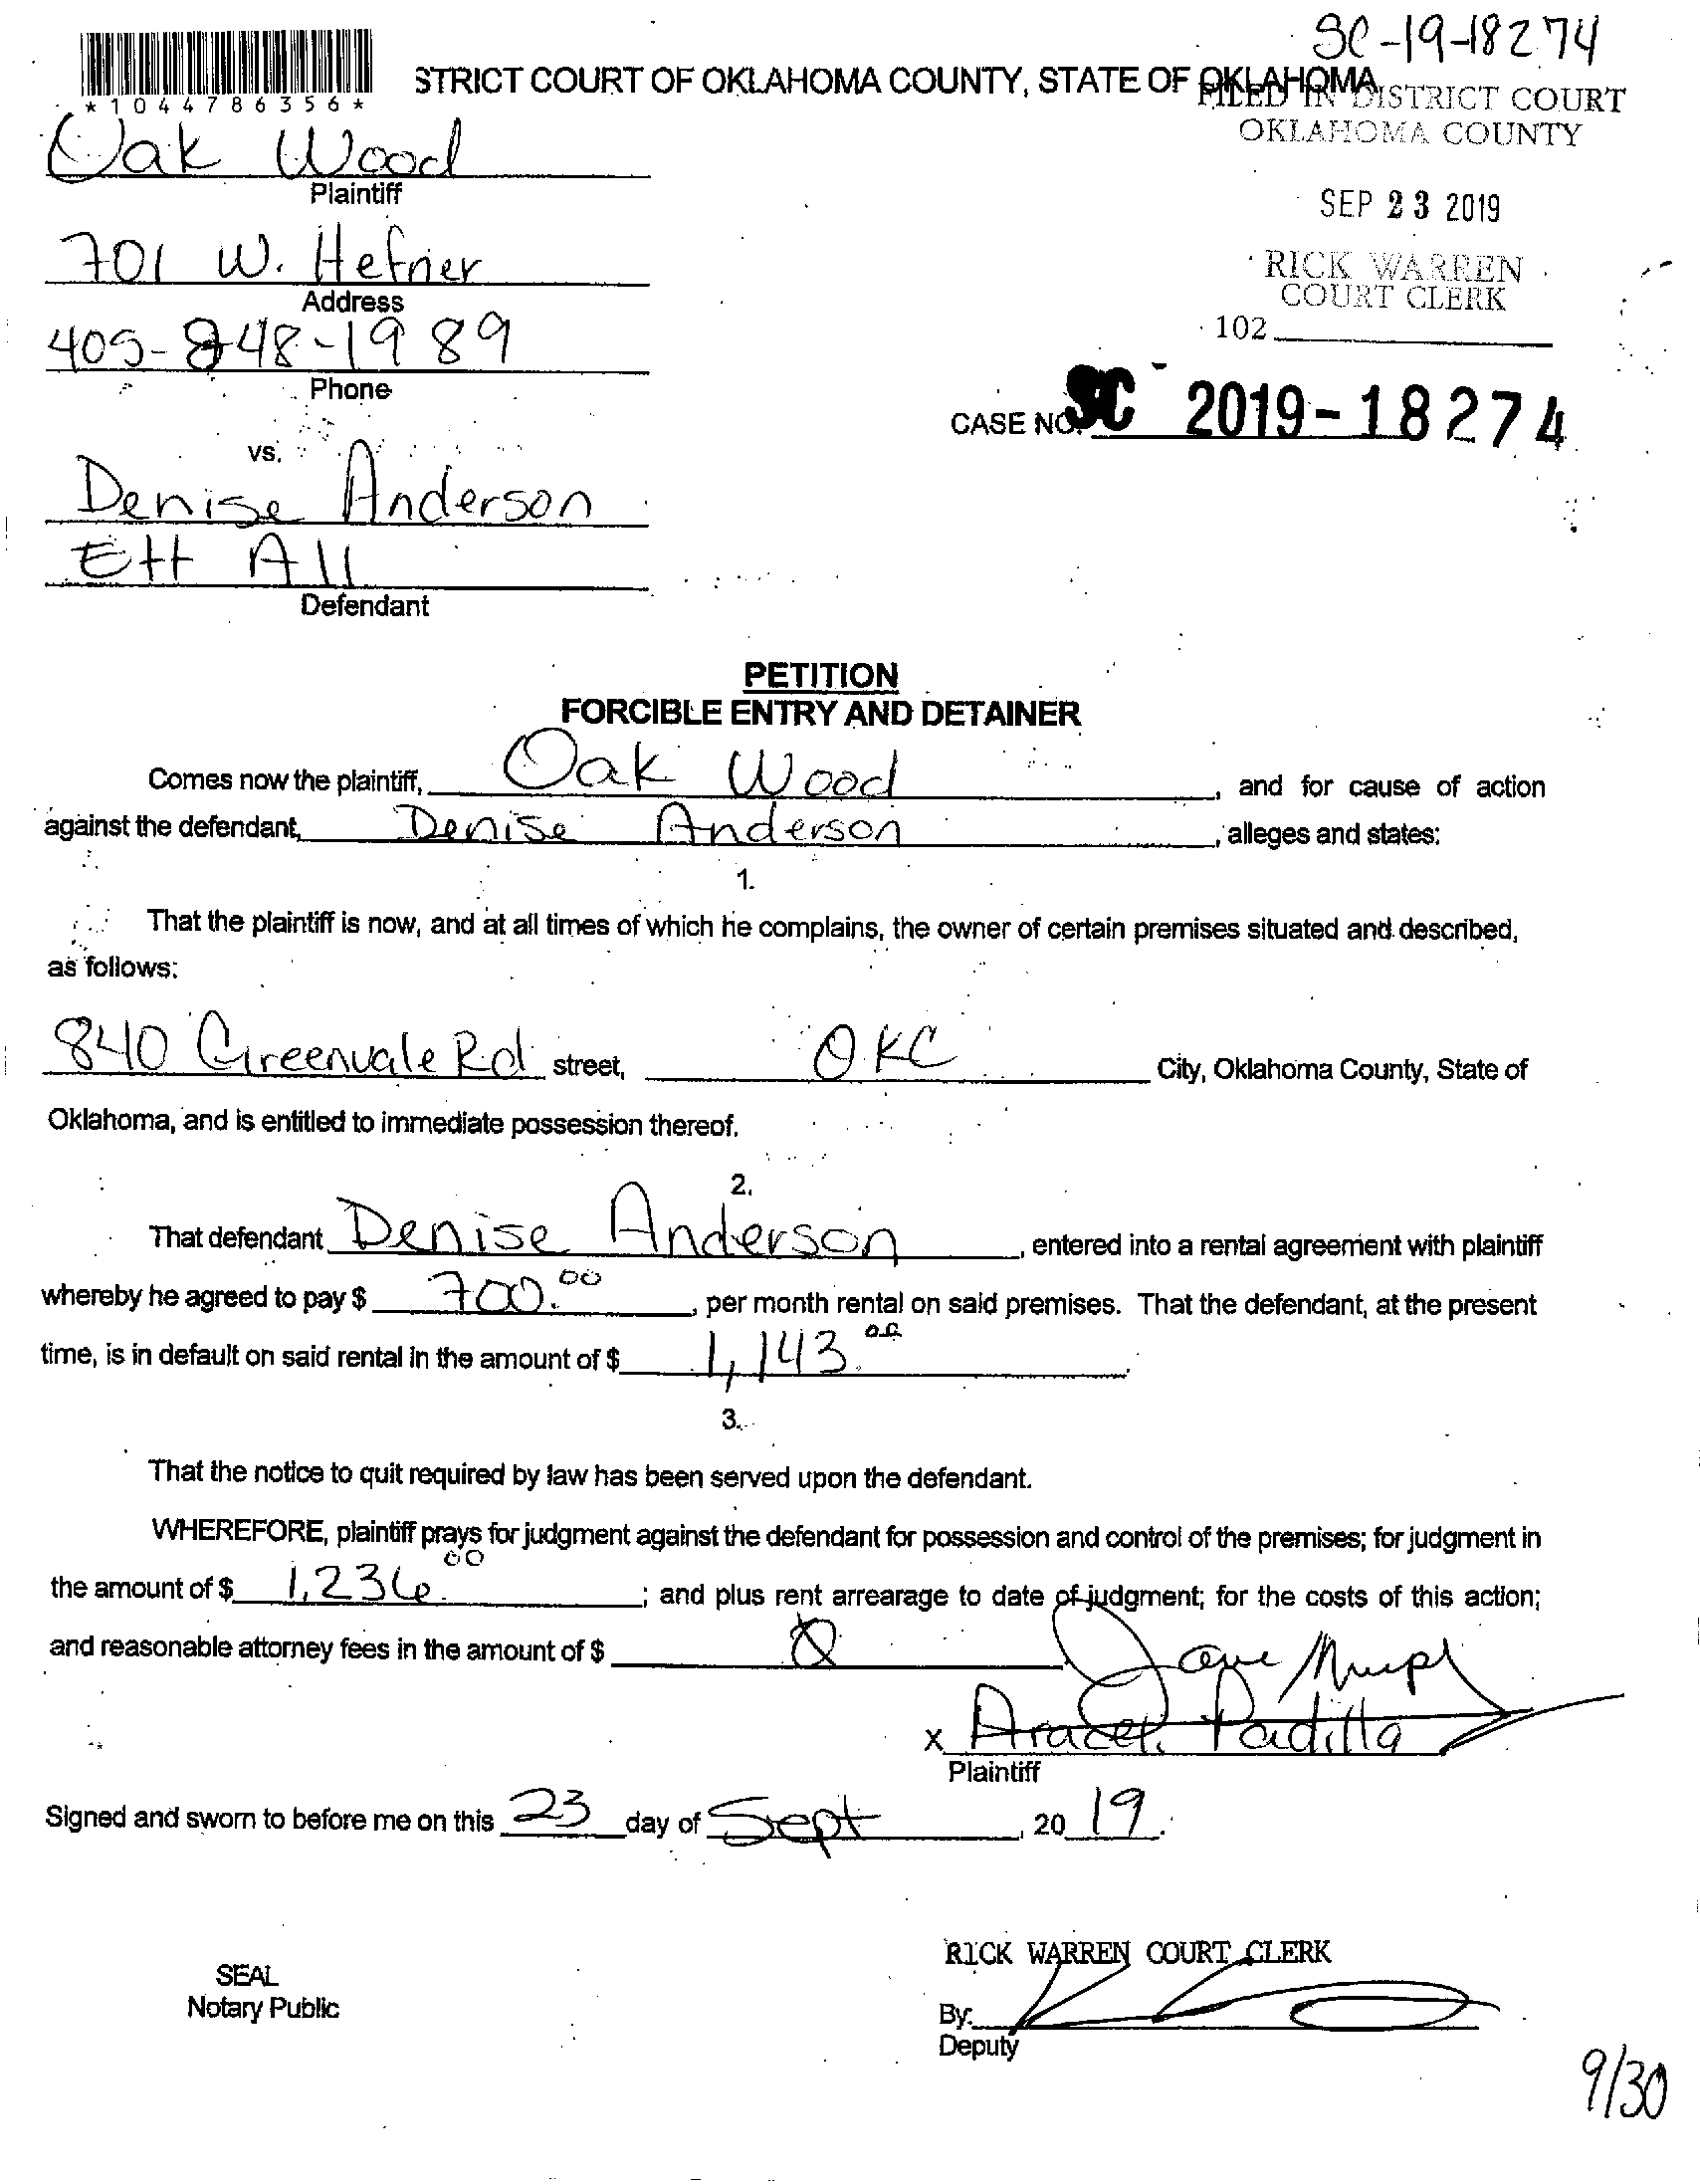 SC-19-18274
STRICT COURT OF OKLAHOMA COUNTY, STATE OF OKLAHOMA
FILED IN DISTRICT COURT
OKLAHOMA COUNTY
*1044786356*
Oak Wood
Plaintiff
SEP 23 2019
701 W. Hefner
Address
RICK WARREN
COURT CLERK
102
405-848-1989
Phone
CASE NO. SC 2019-18274
vs.
Denise Anderson
Ett All
Defendant
PETITION
FORCIBLE ENTRY AND DETAINER
Comes now the plaintiff, Oak Wood, and for cause of action
against the defendant, Denise Anderson, alleges and states:
1.
That the plaintiff is now, and at all times of which he complains, the owner of certain premises situated and described,
as follows:
840 Greenvale Rd street, OKC City, Oklahoma County, State of
Oklahoma, and is entitled to immediate possession thereof.
2.
That defendant Denise Anderson, entered into a rental agreement with plaintiff
whereby he agreed to pay $ 700.00, per month rental on said premises. That the defendant, at the present
time, is in default on said rental in the amount of $ 1,143.00.
3.
That the notice to quit required by law has been served upon the defendant.
WHEREFORE, plaintiff prays for judgment against the defendant for possession and control of the premises; for judgment in
the amount of $ 1,236.00; and plus rent arrearage to date of judgment; for the costs of this action;
and reasonable attorney fees in the amount of $
x Araceli Padilla
Plaintiff
Signed and sworn to before me on this 23 day of Sept, 20 19.
RICK WARREN COURT CLERK
SEAL
Notary Public
By:
Deputy
9/30